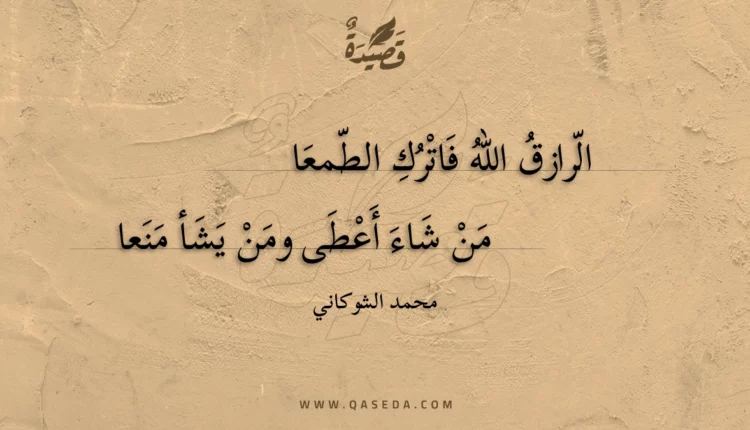 قَصِيْدَةٌ
الّرازقُ اللهُ فَاتْرُكِ الطّمعَا
مَنْ شَاءَ أَعْطَى ومَنْ يَشَأ مَنَعا
محمد الشوكاني
WWW.QASEDA.COM